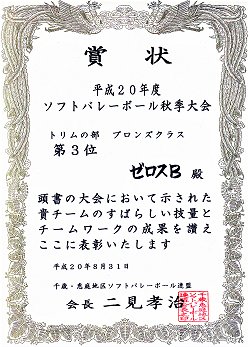 賞状
平成20年度
ソフトバレーボール秋季大会
トリムの部 ブロンズクラス
第3位
ゼロスB 殿
頭書の大会において示された
貴チームのすばらしい技量と
チームワークの成果を讃え
ここに表彰いたします
平成20年8月31日
千歳・恵庭地区ソフトバレーボール連盟
会長 二見孝治